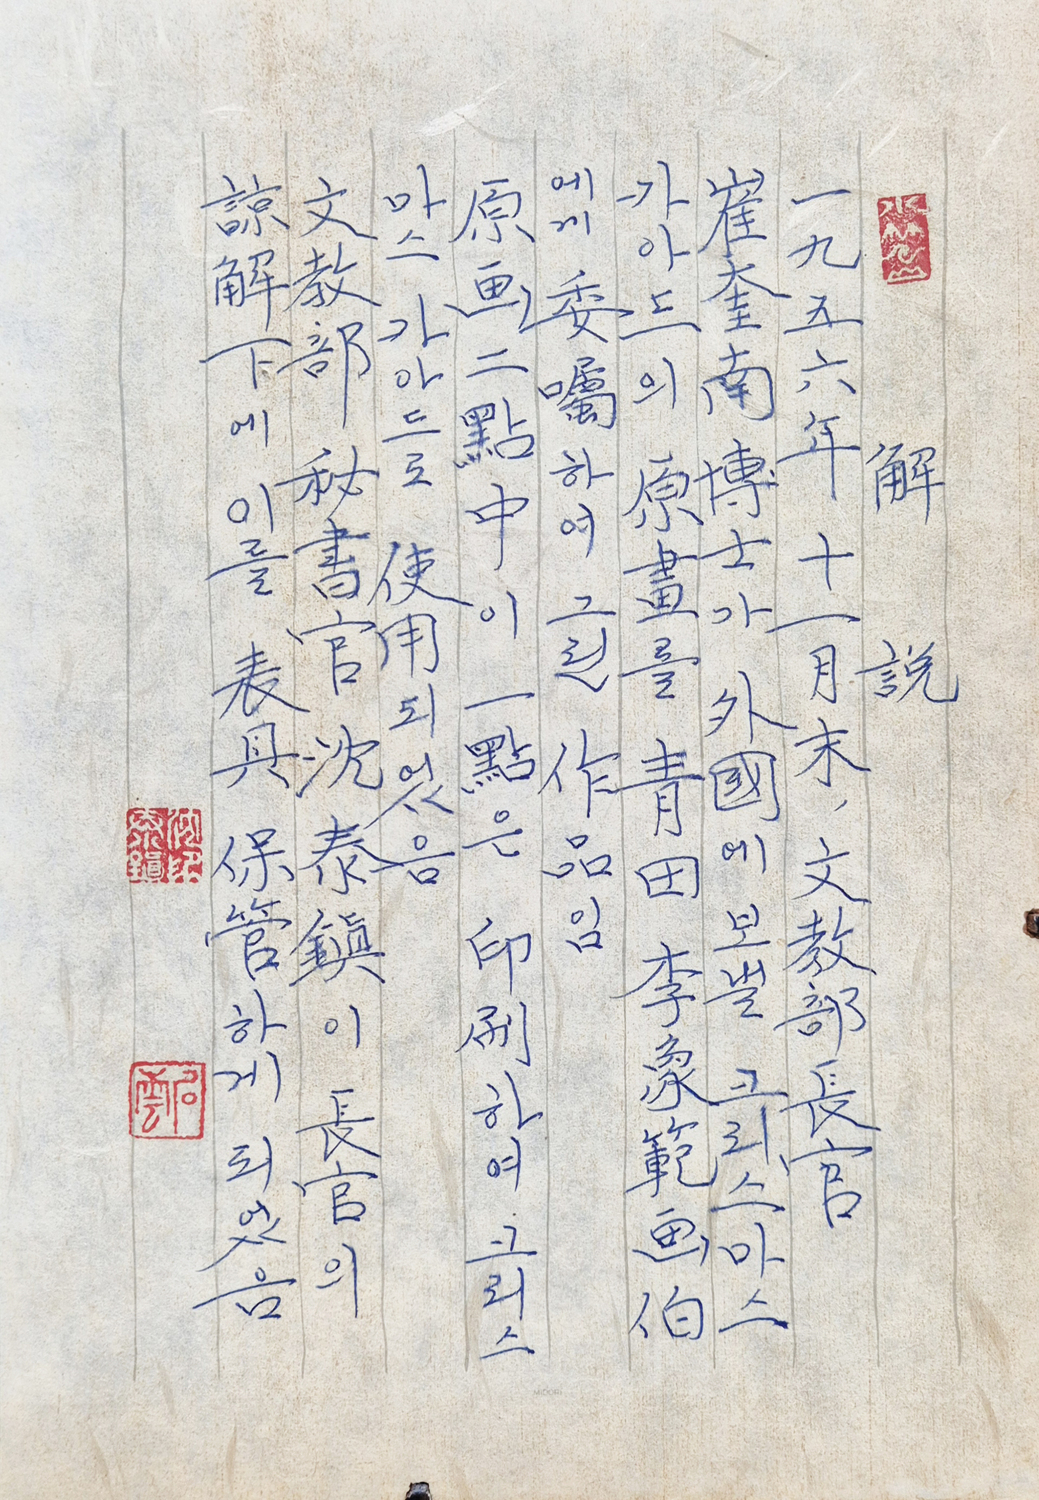 解說
一九五六年 十一月末, 文敎部長官
崔奎南博士가 外國에 보낼 크리스마스
카아드의 原畫를 靑田 李象範画伯
에게 委囑하여 그린 作品임
原画二點中 이 一點은 印刷하여 크리스
마스 카아드로 使用되었음
文敎部 秘書官 沈泰鎭이 長官의
諒解下에 이를 表具 保管하게 되었음
沈泰鎭印
MIDORI